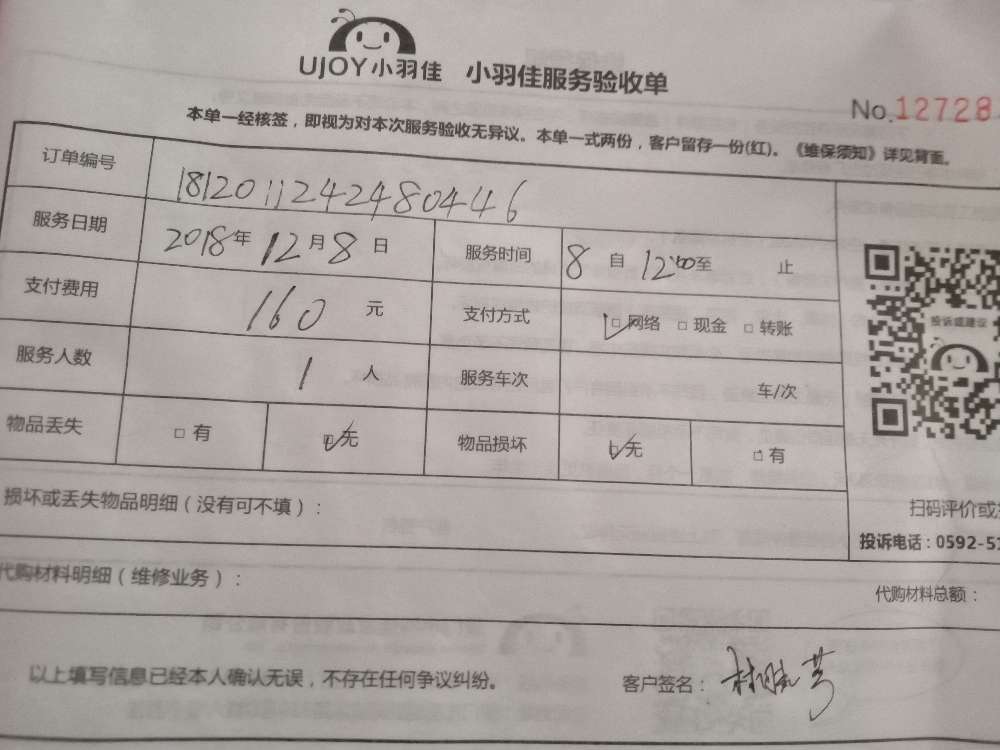 UJOY小羽佳 小羽佳服务验收单
No.12728
本单一经核签，即视为对本次服务验收无异议。本单一式两份，客户留存一份(红)。《维保须知》详见背面。
订单编号 181201124242480446
服务日期 2018年12月8日 服务时间 8自12:00至 止
支付费用 160元 支付方式 □网络 □现金 □转账
投诉或建议
服务人数 1人 服务车次 车/次
物品丢失 □有 □无 物品损坏 □无 □有
损坏或丢失物品明细（没有可不填）：
扫码评价或
投诉电话：0592-51
代购材料明细（维修业务）： 代购材料总额：
以上填写信息已经本人确认无误，不存在任何争议纠纷。 客户签名：